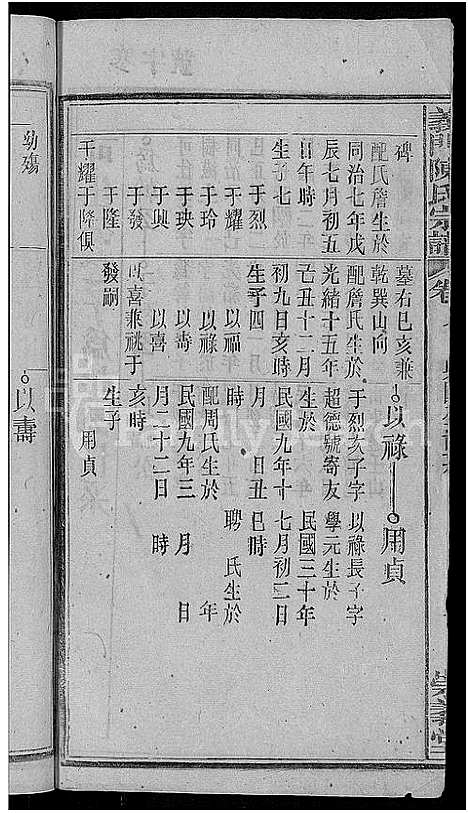 義門陳氏宗譜
卷
崇義堂
碑
配氏詹生於
同治七年戊
辰七月初五
日午時二年
生子七
于烈
于耀
于玲
于瑛
于興
于發
于隆
于耀于隆俱
墓右巳亥兼
乾巽山向
配詹氏生於
光緒十五年
己丑十二月
初九日亥時
生子四
以福
以祿
以壽
以喜
以喜兼祧于
發嗣
以祿
于烈次子字
超德號寄友
生於
民國九年十
月 日丑
時
配周氏生於
民國九年三
月二十二日
亥時
生子
用貞
用貞
以祿長子字
學元生於
民國三十年
七月初二日
巳時
聘 氏生於
年
月 日
時
以壽
幼殤